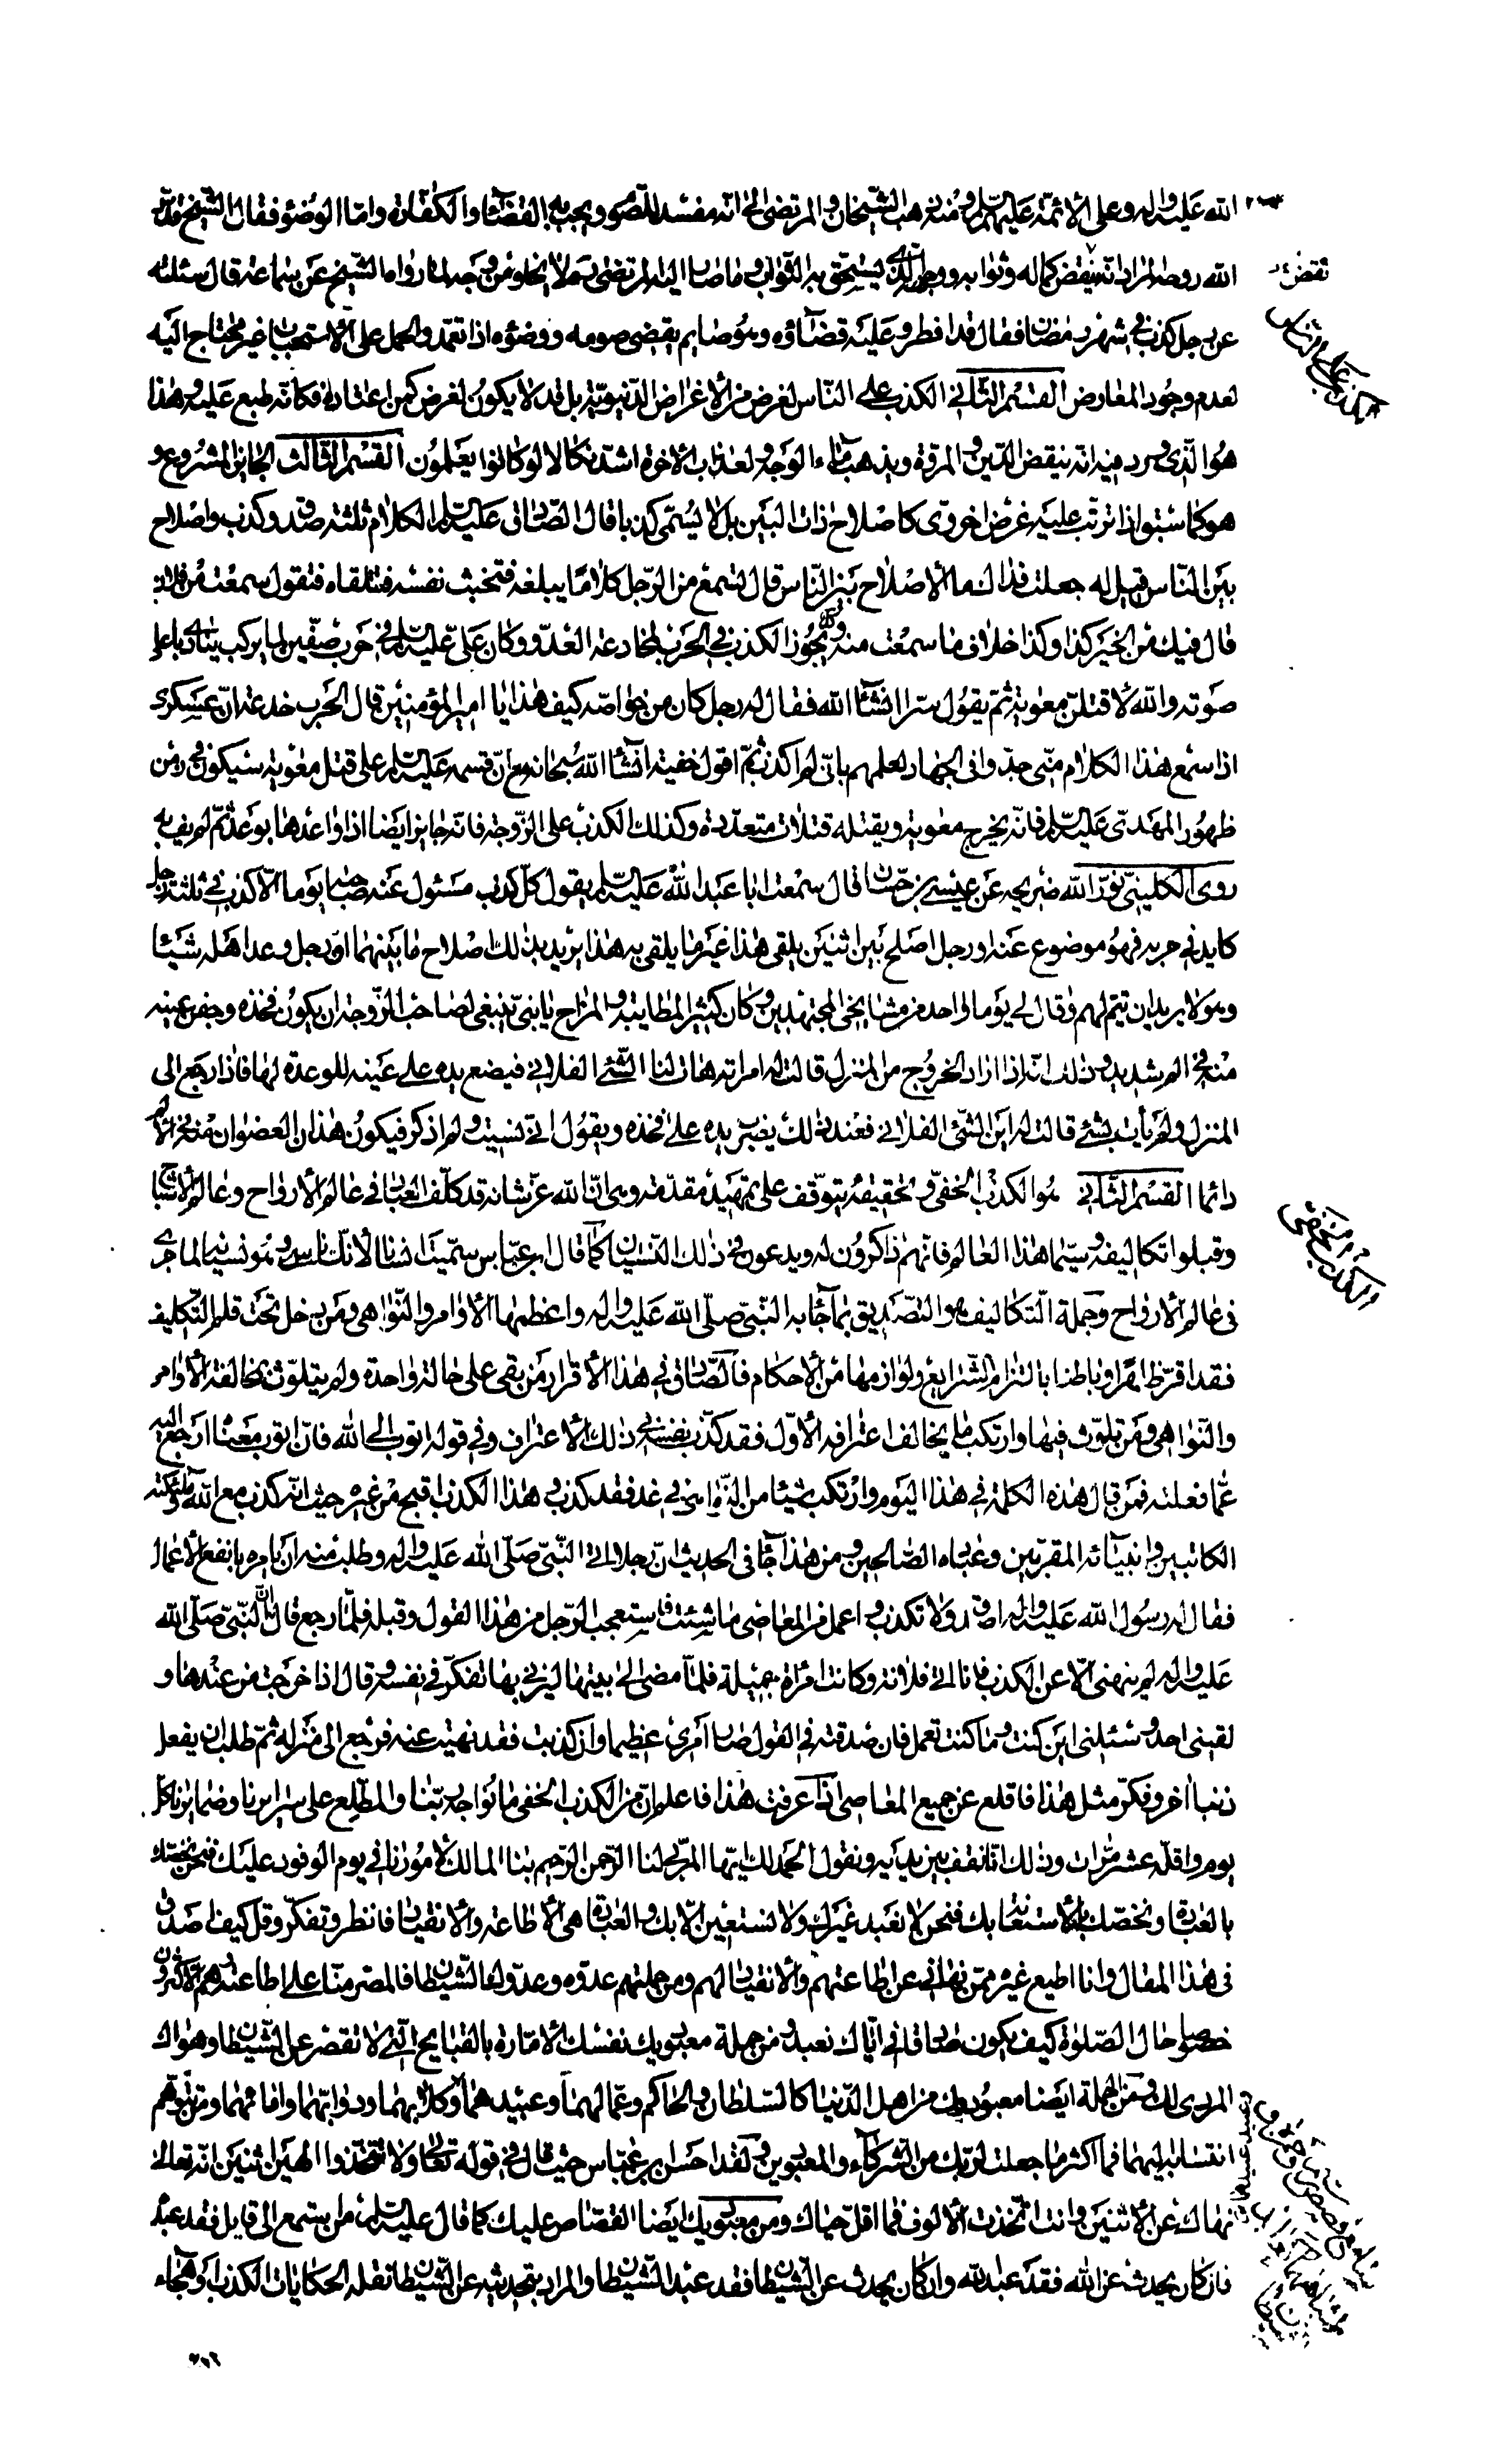 الله عليه واله وعلى الأئمة عليهم السلم ومنه ذهب الشيخان والمرتضى الى انه مفسد للصوم ويجب به القضاء والكفارة واما الوضوء فقال الشيخ قدس
الله روحه المراد انه ينقض كماله وثوابه ووجهه الذي يستحق به الثواب وما صار اليه المرتضى ره لا يخلو من وجه لما رواه الشيخ عن سماعة قال سئلته
عن رجل كذب في شهر رمضان فقال قد افطر وعليه قضاؤه وهو صائم يقضى صومه ووضوءه اذا تعمد والحمل على الاستحباب غير محتاج اليه
لعدم وجود المعارض القسم الثاني الكذب على الناس لغرض من الأغراض الدنيوية بل قد لا يكون لغرض كمن اعتاد به فكانه طبع عليه وهذا
هو الذي ورد فيه انه ينقض الدين والمروة ويذهب بماء الوجه ولعذاب الأخرة اشد نكالا لو كانوا يعلمون القسم الثالث الجايز المشروع و
هو كما سبق اذا ترتب عليه غرض اخروى كاصلاح ذات البين بل لا يسمى كذبا قال الصادق عليه السلم الكلام ثلثة صدق وكذب واصلاح
بين الناس قيل له جعلت فداك ما الأصلاح بين الناس قال تسمع من الرجل كلاما يبلغه فتخبث نفسه فتلقاه فتقول سمعت من فلان
قال فيك من الخير كذا وكذا خلاف ما سمعت منه وكذا يجوز الكذب في الحرب لمخادعة العدو وكان علي عليه السلم في حرب صفين لما يركب ينادي باعلى
صوته والله لاقتلن معوية ثم يقول سرا انشاء الله فقال له رجل كان من خواصه كيف هذا يا امير المؤمنين قال الحرب خدعة ان عسكرى
اذا سمع هذا الكلام منى جدوا في الجهاد لعلمهم باني لم اكذب ثم اقول خفية انشاء الله سبحانه مع ان قسمه عليه السلم على قتل معوية سيكون في زمن
ظهور المهدى عليه السلم فانه يخرج معوية ويقتله قتلات متعددة وكذلك الكذب على الزوجة فانه جايز ايضا اذا واعدها بوعد ثم لم يف به
روى الكليني نور الله ضريحه عن عيسى بن حسان قال سمعت ابا عبد الله عليه السلم يقول كل كذب مسئول عنه صاحبه يوما الا كذب في ثلثة رجل
كايد في حربه فهو موضوع عنه او رجل اصلح بين اثنين يلقى هذا غير ما يلقى به هذا يريد بذلك اصلاح ما بينهما او رجل وعد اهله شيئا
وهو لا يريد ان يتم لهم وقال لي يوما واحد من مشايخى المجتهدين وكان كثير المطايبة والمزاح يا بنى ينبغى لصاحب الزوجة ان يكون فخذه وجفن عينه
منه في الم شديد وذلك انه اذا اراد الخروج من المنزل قالت له امراته هات لنا الشئ الفلاني فيضع يده على عينه للوعدة لها فاذا رجع الى
المنزل ولم يأت بشئ قالت له اين الشئ الفلاني فعند ذلك يضرب يده على فخذه ويقول اني نسيت ولم اذكر فيكون هذان العضوان منه في الألم
دائما القسم الثاني هو الكذب الخفي وتحقيقه يتوقف على تمهيد مقدمة وهي ان الله عز شانه قد كلف العباد في عالم الأرواح وعالم الأشباح
وقبلوا تكاليفه وسيما هذا العالم فانهم ذاكرون له ويدعون في ذلك النسيان كما قال ابن عباس سميت انسانا لأنك ناس وهو نسيانه لما جرى
في عالم الأرواح وجملة التكاليف هو التصديق بما جاء به النبي صلى الله عليه واله واعظمها الأوامر والنواهي ومن دخل تحت قلم التكليف
فقد اقر ظاهرا وباطنا بالتزام الشرايع ولوازمها من الأحكام فالصادق في هذا الأقرار من بقى على حالة واحدة ولم يتلوث بمخالفة الأوامر
والنواهي ومن تلوث فيها وارتكب ما يخالف اعترافه الأول فقد كذب نفسه في ذلك الأعتراف وفي قوله اتوب الى الله فان اتوب معناه ارجع اليه
عما فعلته فمن قال هذه الكلمة في هذا اليوم وارتكب شيئا من النواهي في غد فقد كذب وهذا الكذب اقبح من غيره حيث انه كذب مع الله وملئكته
الكاتبين وانبيائه المقربين وعباده الصالحين ومن هذا جاء في الحديث ان رجلا اتى النبي صلى الله عليه واله وطلب منه ان يامره بانفع الأعمال
فقال له رسول الله عليه واله اصدق ولا تكذب واعمل من المعاصى ما شئت فاستعجب الرجل من هذا القول وقبله فلما رجع قال ان النبي صلى الله
عليه واله لم ينهنى الا عن الكذب فانا اتى فلانة وكانت امراة جميلة فلما مضى الى بيتها ليزنى بها تفكر في نفسه وقال اذا خرجت من عندها و
لقينى احد وسئلنى اين كنت وما كنت تعمل فان صدقته في القول صار امرى عظيما وان كذبت فقد نهيت عنه فرجع الى منزله ثم طلب ان يفعل
ذنبا اخر وفكر مثل هذا فاقلع عن جميع المعاصى اذا عرفت هذا فاعلم ان من الكذب الخفى ما نواجه به ربنا والمطلع على سرايرنا وضمايرنا كل
يوم واقله عشر مرات وذلك انا نقف بين يديه ونقول الحمد لك ايها المربى لنا الرحمن الرحيم بنا المالك لأمورنا في يوم الوفود عليك فنحن نخصك
بالعبادة ونخصك بالأستعانة بك فنحن لا نعبد غيرك ولا نستعين الا بك والعبادة هي الأطاعة والأنقياد فانظر وتفكر وقل كيف اصدق
في هذا المقال وانا اطيع غيره ممن نهاني عن اطاعتهم والأنقياد لهم ومن جملتهم عدوه وعدونا الشيطان فالمصر منا على اطاعته هم الأكثرون
خصوصا حال الصلوة كيف يكون صادقا في اياك نعبد ومن جملة معبوديك نفسك الأمارة بالقبايح التى لا تقصر عن الشيطان وهواك
المردى لك ومن الجملة ايضا معبودوك من اهل الدنيا كالسلطان والحاكم وعمالهما وعبيدهما وكلابهما ودوابهما واقامهما ومن توهم
انتسابه اليهما فما اكثر ما جعلت لربك من الشركاء والمعبودين ولقد احسن ابن عباس حيث قال في قوله تعالى ولا تتخذوا الهين اثنين انه تعالى
نهاك عن الأثنين وانت اتخذت الألوف فما اقل حياك ومن معبوديك ايضا القصاص عليك كما قال عليه السلم من استمع الى قايل فقد عبده
فان كان يحدث عن الله فقد عبد الله وان كان يحدث عن الشيطان فقد عبد الشيطان والمراد بتحديثه عن الشيطان نقله الحكايات الكذب او هجاء
نقض
الكذب على الناس
الكذب الخفى